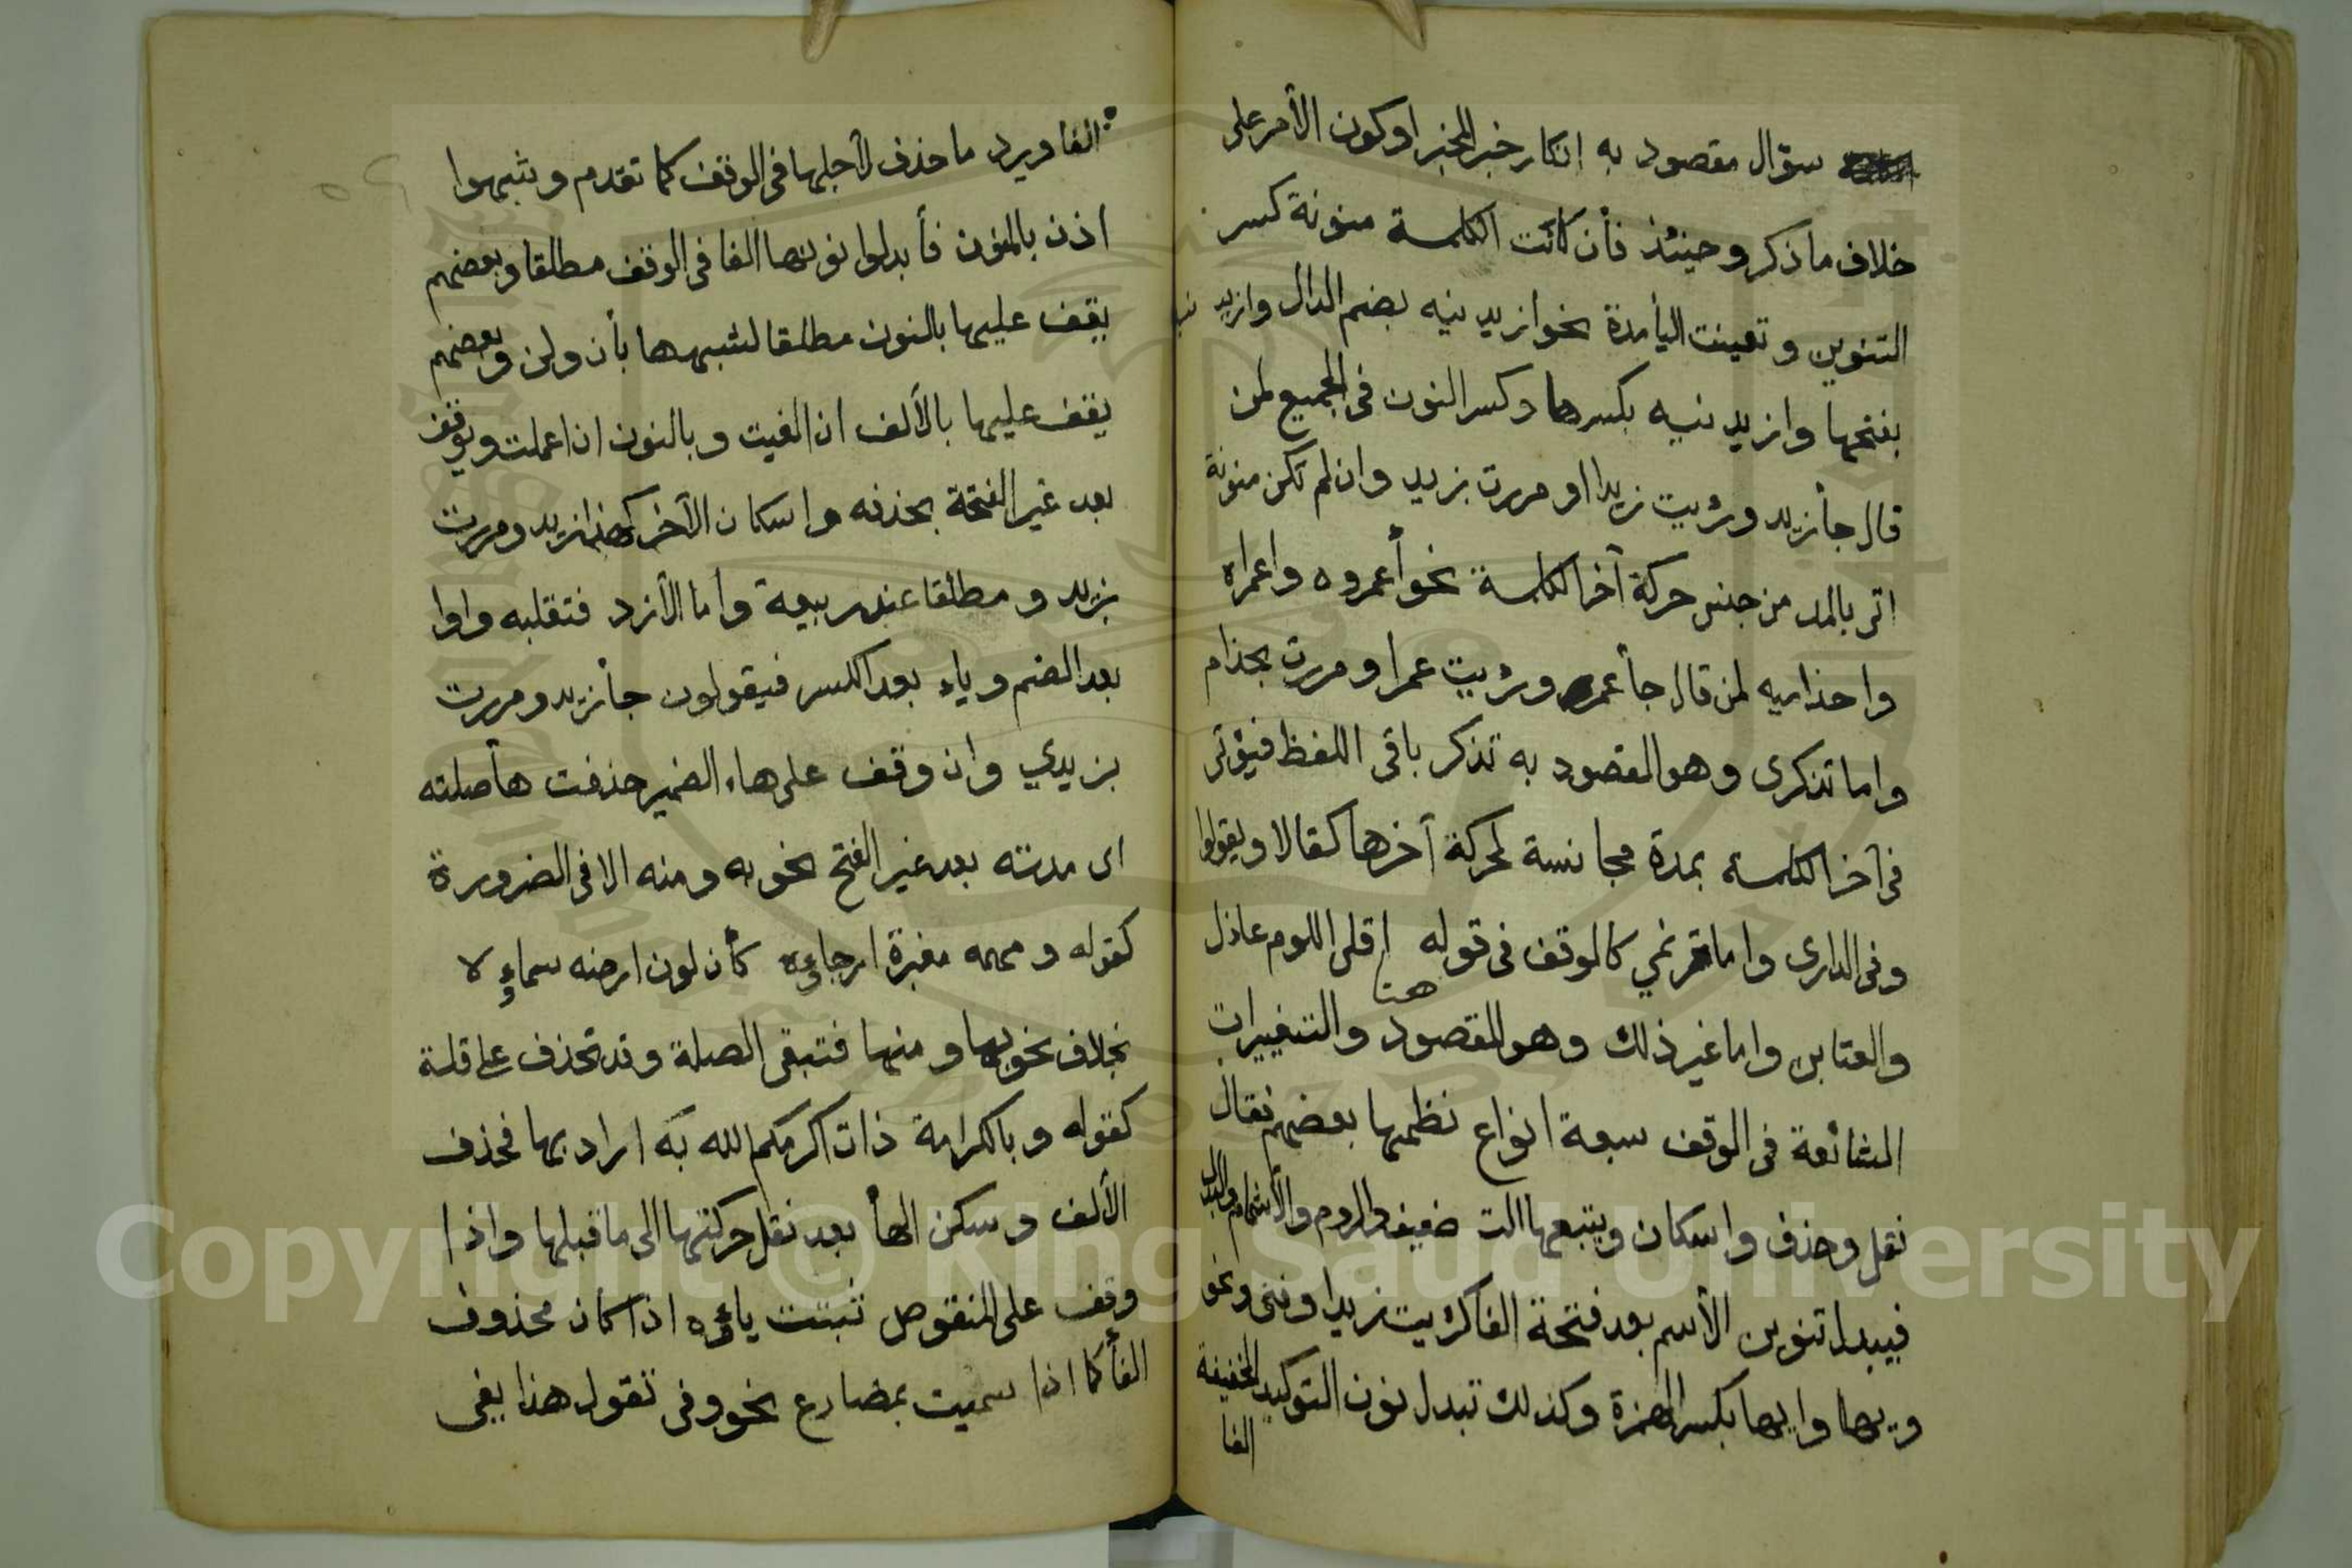 سؤال مقصود به انكار خبر المخبر او كون الأمر على
خلاف ما ذكر وحينئذ فأن كانت الكلمة منونة كسر
التنوين وتعينت اليأ مدة نحو ازيد نيه بضم الدال وازيد نيه
بفتحها وازيد نيه بكسرها وكسر النون فى الجميع لمن
قال جأ زيد ورئيت زيدا او مررت بزيد وان لم تكن منونة
اتى بالمد من جنس حركة آخر الكلمة نحو أعمروه واعمراه
واحذاميه لمن قال جأ عمرو ورئيت عمرا ومررت بحذام
واما تذكرى وهو المقصود به تذكر باقى اللفظ فيؤتى
فى آخر الكلمة بمدة مجانسة لحركة آخرها كقالا ويقولوا
وفى الدارى واما ترنمي كالوقف فى قوله اقلى اللوم عاذل
والعتابن واما غير ذلك وهو المقصود هنا والتغييرات
الشائعة فى الوقف سبعة انواع نظمها بعضهم فقال
نقل وحذف واسكان ويتبعها الت ضعيف والروم والأشمام والبدل
فيبدل تنوين الأسم بعد فتحة الفا كرئيت زيدا وفتى ونحو
ويها وايها بكسر الهمزة وكذلك تبدل نون التوكيد الخفيفة
الفا
الفا ويرد ما حذف لأجلها فى الوقف كما تقدم وشبهوا
اذن بالمنون فأبدلوا نونها الفا فى الوقف مطلقا وبعضهم
يقف عليها بالنون مطلقا لشبهها بأن ولن وبعضهم
يقف عليها بالألف ان الغيت وبالنون ان اعملت ويوقف
بعد غير الفتحة بحذفه واسكان الآخر كهذا زيد ومررت
بزيد ومطلقا عند ربيعة وأما الأزد فتقلبه واوا
بعد الضم وياء بعد الكسر فيقولون جأ زيدو ومررت
بزيدي وان وقف على هاء الضمير حذفت هأ صلته
اى مدته بعد غير الفتح نحو به ومنه الا فى الضرورة
كقوله ومهمه مغبرة ارجاؤه كأن لون ارضه سماؤه
بخلاف نحو بها ومنها فتبقى الصلة وقد تحذف على قلة
كقوله وبالكرامة ذات اكرمكم الله بَه اراد بها فحذف
الألف وسكن الهأ بعد نقل حركتها الى ما قبلها واذا
وقف على المنقوص تثبتت ياؤه اذا كان محذوف
الفأ كما اذا سميت بمضارع نحو وفى تقول هذا يفى
Copyright © King Saud University